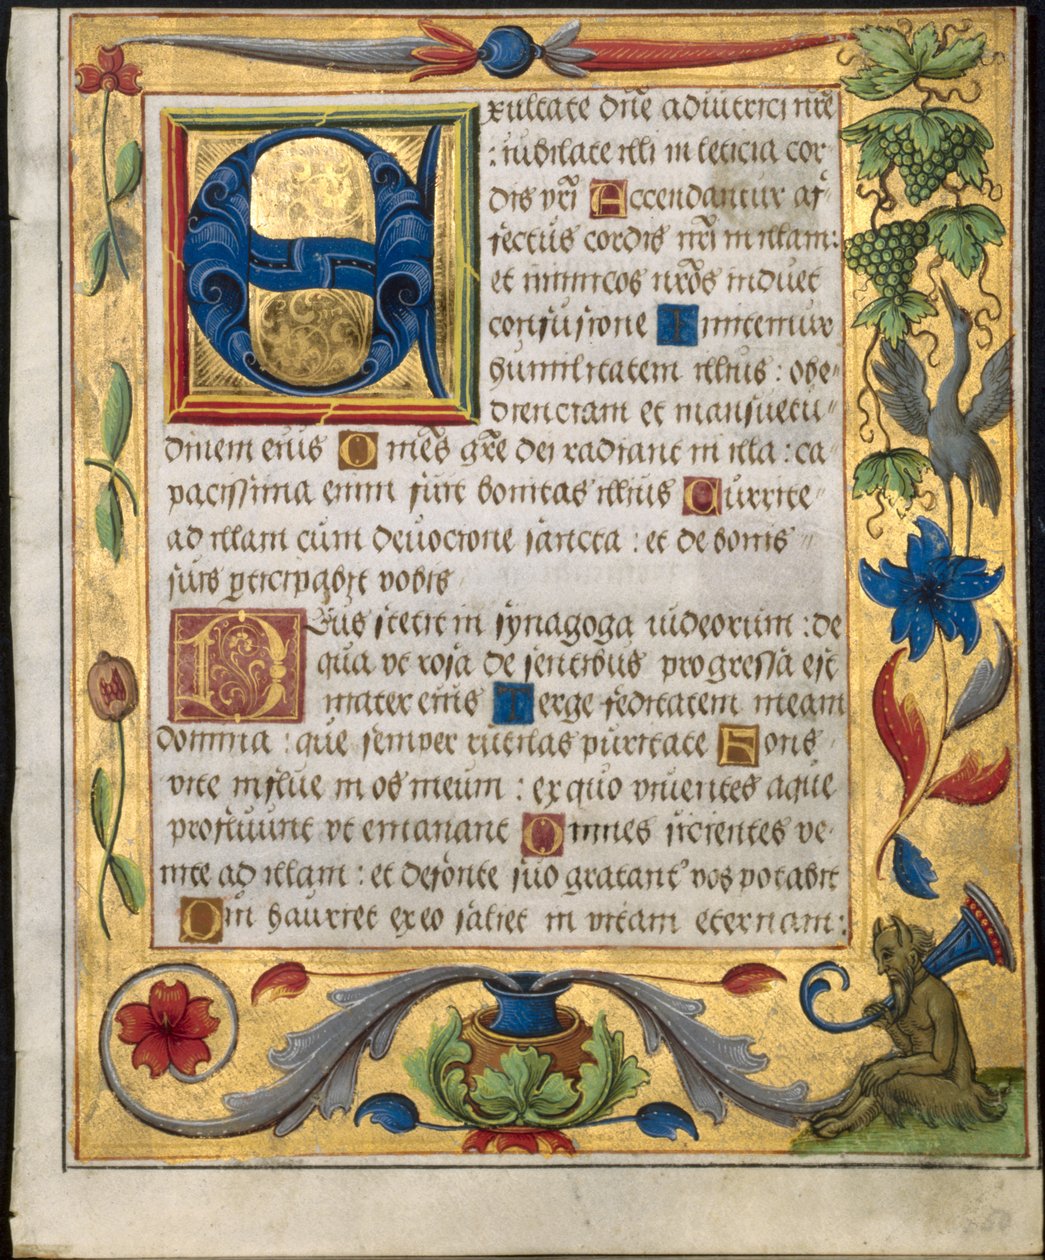 Exultate dñe adiutrici nr̃e
: iubilate illi in leticia cor-
dis vr̃i Accendantur af-
fectus cordis nr̃i in illam:
et inimicos nr̃os induet
confusione Imitemur
humilitatem illius : obe-
dienciam et mansuetu-
dinem eius Omẽs gr̃e dei radiant in illa : ca-
pacissima enim fuit bonitas illius Currite
ad illam cum devocione sancta : et de bonis
suis p̱ticipabit vobis
Quis stetit in synagoga iudeorum : de
qua vt rosa de sentibus progressa est
mater eius Terge feditatem meam
domina : que semper rutilas puritate Fons
vite influe in os meum : ex quo viventes aque
profluunt vt emanant Omnes sicientes ve-
nite ad illam : et de fonte suo gratant' vos potabit
Qui hauriet ex eo saliet in vitam eternam:
50